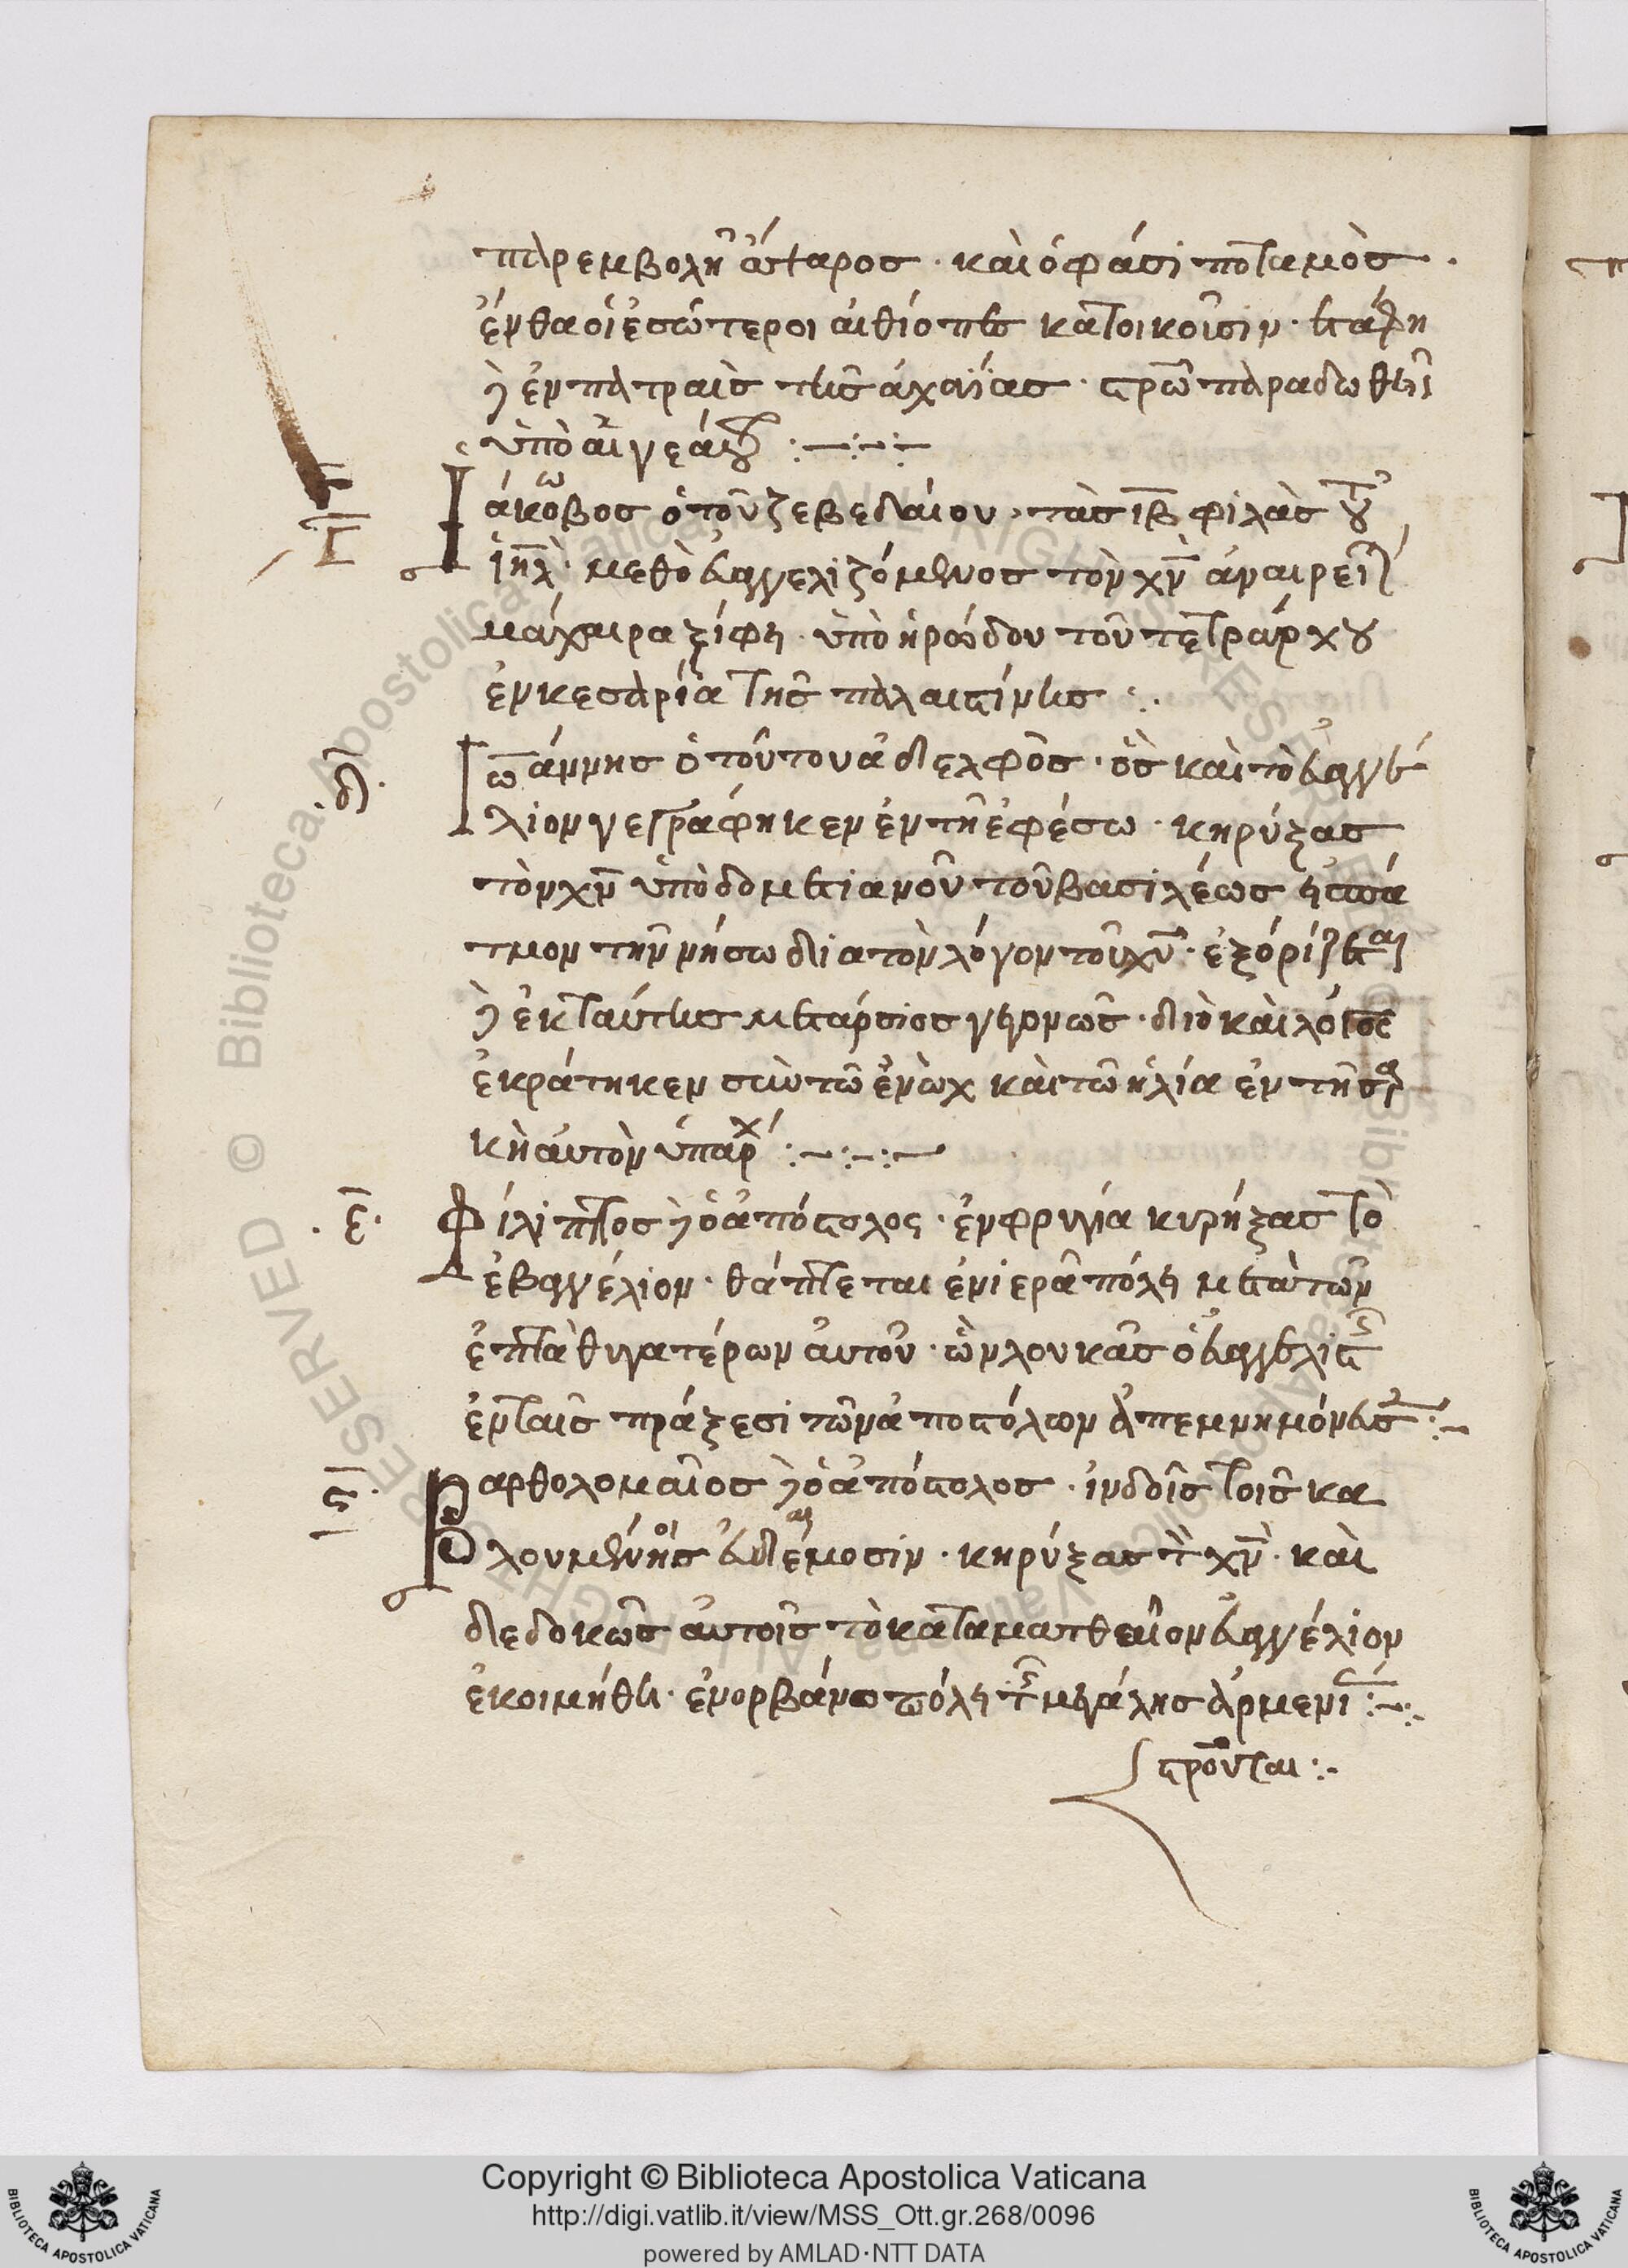 παρεμβολὴ ἄσταρος · καὶ ὁ φάσι ποταμὸς ·
ἔνθα οἱ ἐσώτεροι αἰθίοπες κατοικοῦσιν · ἐτάφη
ἐν πατραις τῆς ἀχαΐας · στρῶ παραδωθεὶς
ὑπὸ αἰγεάτου
Γ
Ιάκωβος ὁ τοῦ ζεβεδαίου · τὰς ιβ φιλὰς τοῦ
ιηλ · μεθὸ εὐαγγελιζόμενος τὸν χν ἀναιρεῖται
μάχαιρα ξίφη · ὑπὸ ἡρώδου τοῦ τετράρχου
ἐν κεσαρία τῆς παλαιστίνης
Δ
Ιωάννης ὁ τούτου ἀδελφὸς · ὃς καὶ τὸ εὐαγγε
λιον γεγράφηκεν ἐν τῆ ἐφέσω · κηρύξας
τὸν χν ὑπὸ δομετιανοῦ τοῦ βασιλέως εἰς πά
τμον τὴν νήσω διὰ τὸν λόγον τοῦ χυ · ἐξόρίζεται
ἐκ ταύτης μετάρσιος γεγονὼς · διὸ καὶ λόγος
ἐκράτηκεν σὺν τῶ ἐνὼχ καὶ τῶ ἡλία ἐν τῆ σαρ
κὴ αὐτὸν ὑπάρχ
Ε
Φίλιππος ὁ ἀπόστολος · ἐν φρυγία κυρήξας τὸ
ἐβαγγέλιον · θάπτεται ἐν ἱερᾶ πόλει μετὰ τῶν
ἑπτὰ θυγατέρων αὐτοῦ · ὧν λουκᾶς ὁ εὐαγγελιστὴς
ἐν ταῖς πράξεσι τῶν ἀποστόλων ἀπεμνημόνευσε
ϛ
Βαρθολομαῖος ὁ ἀπόστολος · ἰνδοῖς τοῖς κα
λουμένοις εὐδαίμοσιν · κηρύξας τὸν χν · καὶ
δεδοκὼς αὐτοῖς τὸ κατὰ ματθαῖον εὐαγγέλιον
ἐκοιμήθη · ἐν ορβάνω πόλει τῆς μεγάλης ἀρμενί
στροῦται
Copyright © Biblioteca Apostolica Vaticana
http://digi.vatlib.it/view/MSS_Ott.gr.268/0096
powered by AMLAD·NTT DATA